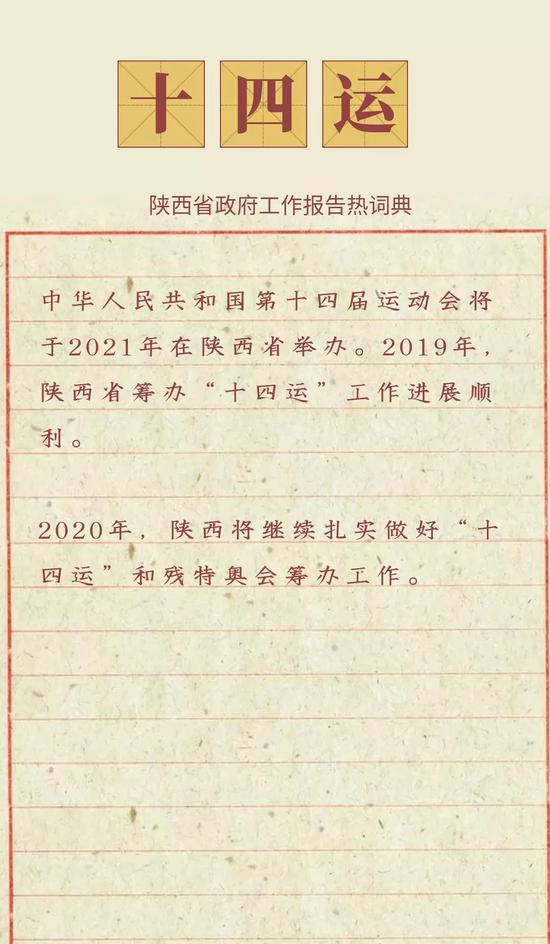 十四运
陕西省政府工作报告热词典
中华人民共和国第十四届运动会将
于2021年在陕西省举办。2019年,
陕西省筹办“十四运”工作进展顺
利。
2020年, 陕西将继续扎实做好“十
四运”和残特奥会筹办工作。